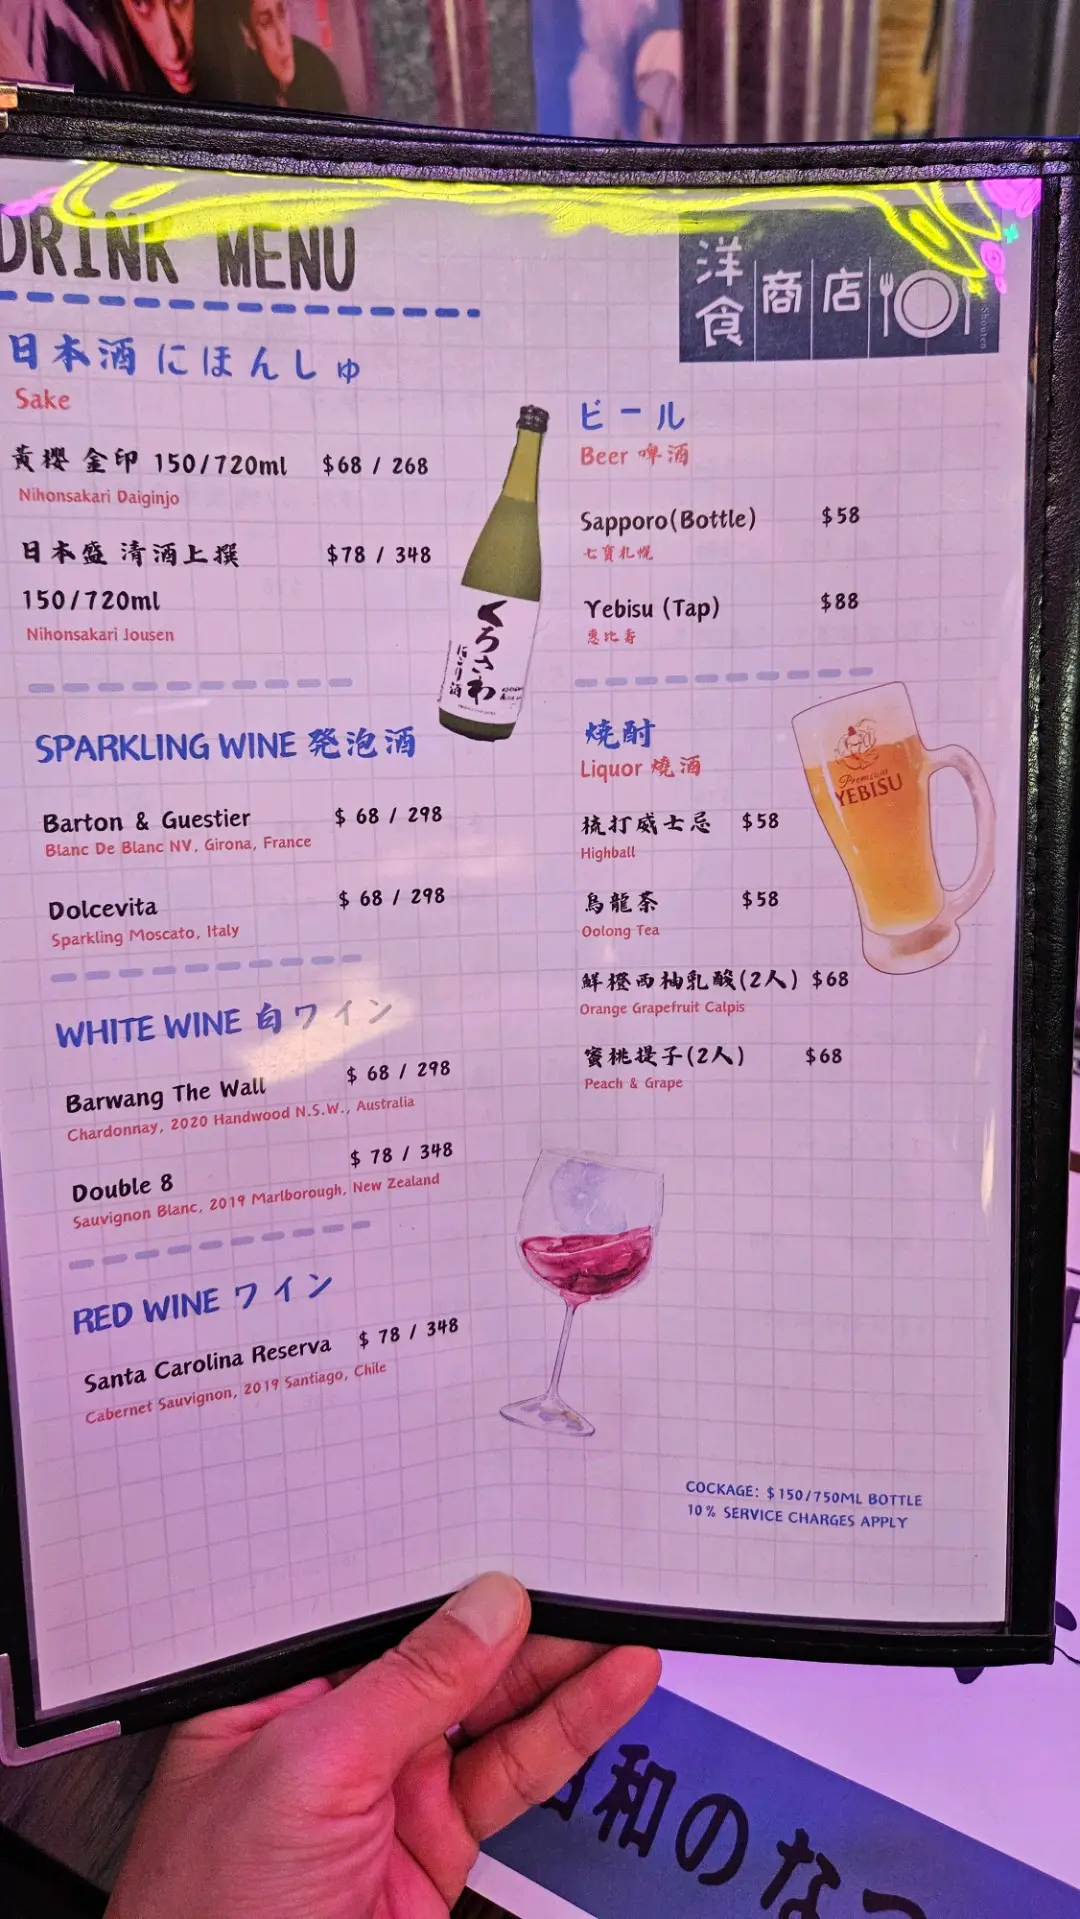 DRINK MENU
洋食商店
Shouten
日本酒 にほんしゅ
Sake
黃櫻 金印 150/720ml $68 / 268
Nihonsakari Daiginjo
日本盛 清酒上撰 $78 / 348
150/720ml
Nihonsakari Jousen
くろさわ
にごり酒
SPARKLING WINE 発泡酒
Barton & Guestier $ 68 / 298
Blanc De Blanc NV, Girona, France
Dolcevita $ 68 / 298
Sparkling Moscato, Italy
WHITE WINE 白ワイン
Barwang The Wall $ 68 / 298
Chardonnay, 2020 Handwood N.S.W., Australia
Double 8 $ 78 / 348
Sauvignon Blanc, 2019 Marlborough, New Zealand
RED WINE ワイン
Santa Carolina Reserva $ 78 / 348
Cabernet Sauvignon, 2019 Santiago, Chile
ビール
Beer 啤酒
Sapporo(Bottle) $58
七寶札幌
Yebisu (Tap) $88
惠比寿
焼酎
Liquor 燒酒
Premium
YEBISU
梳打威士忌 $58
Highball
烏龍茶 $58
Oolong Tea
鮮橙西柚乳酸(2人) $68
Orange Grapefruit Calpis
蜜桃提子(2人) $68
Peach & Grape
COCKAGE: $150/750ML BOTTLE
10% SERVICE CHARGES APPLY
昭和のなつ